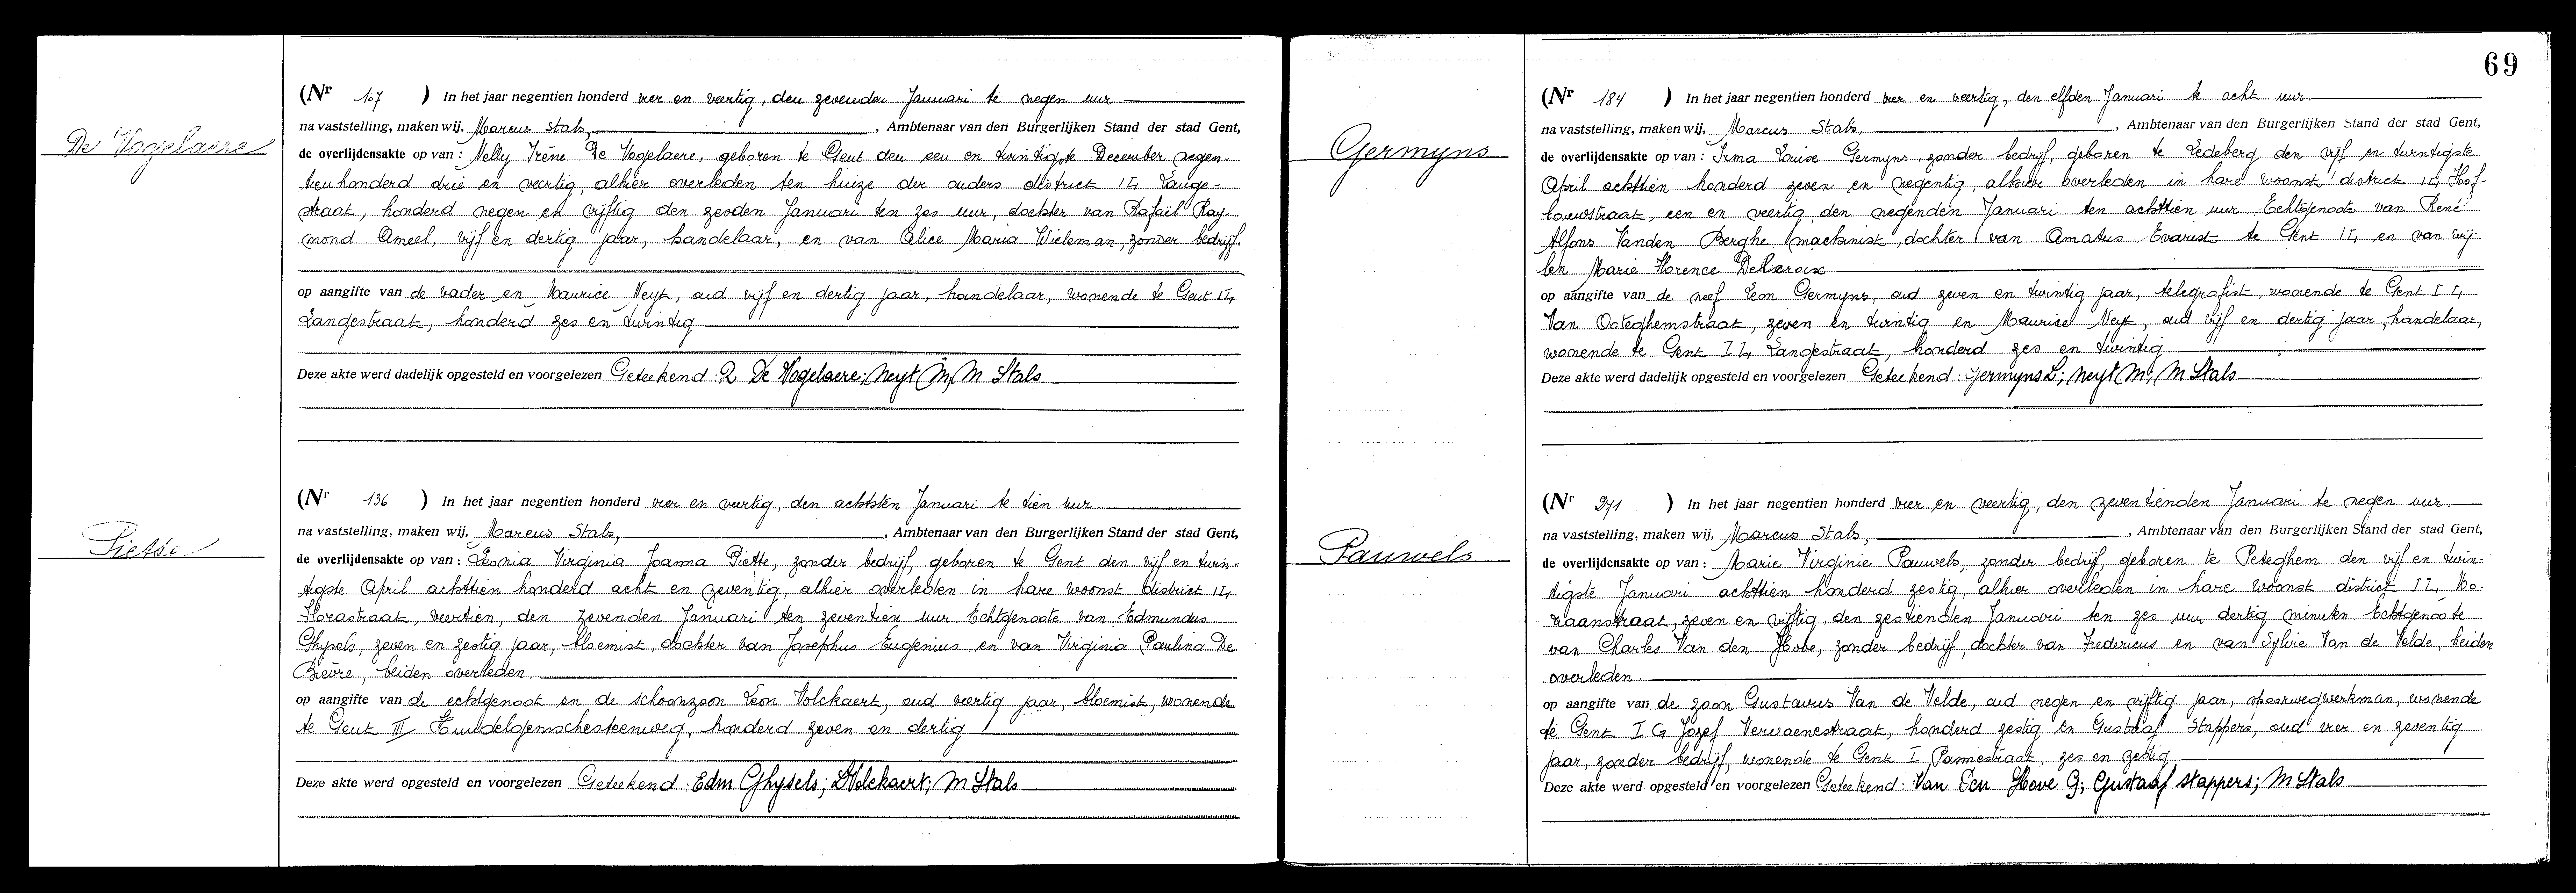 De Vogelaere
(Nr 107 ) In het jaar negentien honderd vier en veertig, den zevenden Januari te negen uur
na vaststelling, maken wij, Marcus Stals, , Ambtenaar van den Burgerlijken Stand der stad Gent,
de overlijdensakte op van : Nelly Irène De Vogelaere, geboren te Gent den een en twintigste December negen-
tien honderd drie en veertig, alhier overleden ten huize der ouders district I L, Lange-
straat, honderd negen en vijftig den zesden Januari ten zes uur, dochter van Rafaël Ray-
mond Ameel, vijf en dertig jaar, handelaar, en van Alice Maria Wieleman, zonder bedrijf.
op aangifte van de vader en Maurice Neyt, oud vijf en dertig jaar, handelaar, wonende te Gent I L,
Langestraat, honderd zes en twintig
Deze akte werd dadelijk opgesteld en voorgelezen Geteekend : R De Vogelaere; Neyt M, M Stals
Piette
(Nr 136 ) In het jaar negentien honderd vier en veertig, den achtsten Januari te tien uur
na vaststelling, maken wij, Marcus Stals, , Ambtenaar van den Burgerlijken Stand der stad Gent,
de overlijdensakte op van : Leonia Virginia Joanna Piette, zonder bedrijf, geboren te Gent den vijf en twin-
tigste April achttien honderd acht en zeventig, alhier overleden in hare woonst district I L,
Florastraat, veertien, den zevenden Januari ten zeventien uur Echtgenoote van Edmundus
Ghysels, zeven en zestig jaar, bloemist, dochter van Josephus Eugenius en van Virginia Paulina De
Bièvre, beiden overleden
op aangifte van de echtgenoot en de schoonzoon Leon Volckaert, oud veertig jaar, bloemist, wonende
te Gent III Hundelgemschesteenweg, honderd zeven en dertig
Deze akte werd opgesteld en voorgelezen Geteekend : Edm Ghysels; L Volckaert; M Stals
69
Germyns
(Nr 184 ) In het jaar negentien honderd vier en veertig, den elfden Januari te acht uur
na vaststelling, maken wij, Marcus Stals, , Ambtenaar van den Burgerlijken Stand der stad Gent,
de overlijdensakte op van : Irma Louise Germyns, zonder bedrijf, geboren te Ledeberg den vijf en twintigste
April achttien honderd zeven en negentig, alhier overleden in hare woonst district I L, Hof-
bouwstraat, een en veertig, den negenden Januari ten achttien uur Echtgenoote van René
Alfons Vanden Berghe, machinist, dochter van Amatus Evarist te Gent I L, en van wij-
len Marie Florence Delcroix
op aangifte van de neef Leon Germyns, oud zeven en twintig jaar, telegrafist, wonende te Gent I L,
Van Octeghemstraat, zeven en twintig en Maurice Neyt, oud vijf en dertig jaar, handelaar,
wonende te Gent I L, Langestraat, honderd zes en twintig
Deze akte werd dadelijk opgesteld en voorgelezen Geteekend : Germyns L; Neyt M; M Stals
Pauwels
(Nr 271 ) In het jaar negentien honderd vier en veertig, den zeventienden Januari te negen uur.
na vaststelling, maken wij, Marcus Stals, , Ambtenaar van den Burgerlijken Stand der stad Gent,
de overlijdensakte op van : Marie Virginie Pauwels, zonder bedrijf, geboren te Peteghem den vijf en twin-
tigste Januari achttien honderd zestig, alhier overleden in hare woonst district I L,
zeven en vijftig, den zestienden Januari ten zes uur dertig minuten Echtgenoote
van Charles Van den Hove, zonder bedrijf, dochter van Fredericus en van Sylvie Van de Velde, beiden
overleden.
op aangifte van de zoon Gustavus Van de Velde, oud negen en vijftig jaar, spoorwegwerkman, wonende
te Gent I G Jozef Vervaenestraat, honderd zestig en Gustaaf Stappers, oud vier en zeventig
jaar, zonder bedrijf, wonende te Gent I Pannestraat, zes en zestig
Deze akte werd opgesteld en voorgelezen Geteekend : Van Den Hove G; Gustaaf Stappers; M Stals